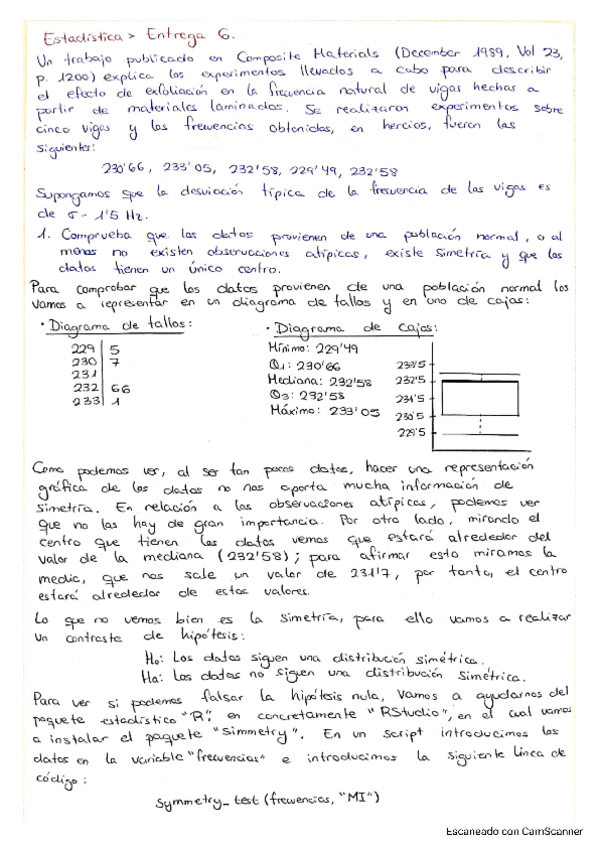 Estadística > Entrega 6.
Un trabajo publicado en Composite Materials (December 1989, Vol 23,
p. 1200) explica los experimentos llevados a cabo para describir
el efecto de exfoliación en la frecuencia natural de vigas hechas a
partir de materiales laminados. Se realizaron experimentos sobre
cinco vigas y las frecuencias obtenidas, en hercios, fueron las
siguientes:
230'66, 233'05, 232'58, 229'49, 232'58
Supongamos que la desviación típica de la frecuencia de las vigas es
de σ - 1'5 Hz.
1. Comprueba que los datos provienen de una población normal, o al
menos no existen observaciones atípicas, existe simetría y que los
datos tienen un único centro.
Para comprobar que los datos provienen de una población normal los
vamos a representar en un diagrama de tallos y en uno de cajas:
· Diagrama de tallos:
229 | 5
230 | 7
231 |
232 | 66
233 | 1
· Diagrama de cajas:
Mínimo: 229'49
Q1: 230'66
Mediana: 232'58
Q3: 232'58
Máximo: 233'05
233'5
232'5
231'5
230'5
229'5
Como podemos ver, al ser tan pocos datos, hacer una representación
gráfica de los datos no nos aporta mucha información de
simetría. En relación a las observaciones atípicas, podemos ver
que no las hay de gran importancia. Por otro lado, mirando el
centro que tienen los datos vemos que estará alrededor del
valor de la mediana (232'58); para afirmar esto miramos la
media, que nos sale un valor de 231'7, por tanto, el centro
estará alrededor de estos valores.
Lo que no vemos bien es la simetría, para ello vamos a realizar
un contraste de hipótesis:
H₀: Los datos siguen una distribución simétrica.
Ha: Los datos no siguen una distribución simétrica.
Para ver si podemos falsar la hipótesis nula, vamos a ayudarnos del
paquete estadístico "R". en concretamente "RStudio", en el cual vamos
a instalar el paquete "simmetry". En un script introducimos los
datos en la variable "frecuencias" e introducimos la siguiente línea de
código:
symmetry_test (frecuencias, "MI")
Escaneado con CamScanner